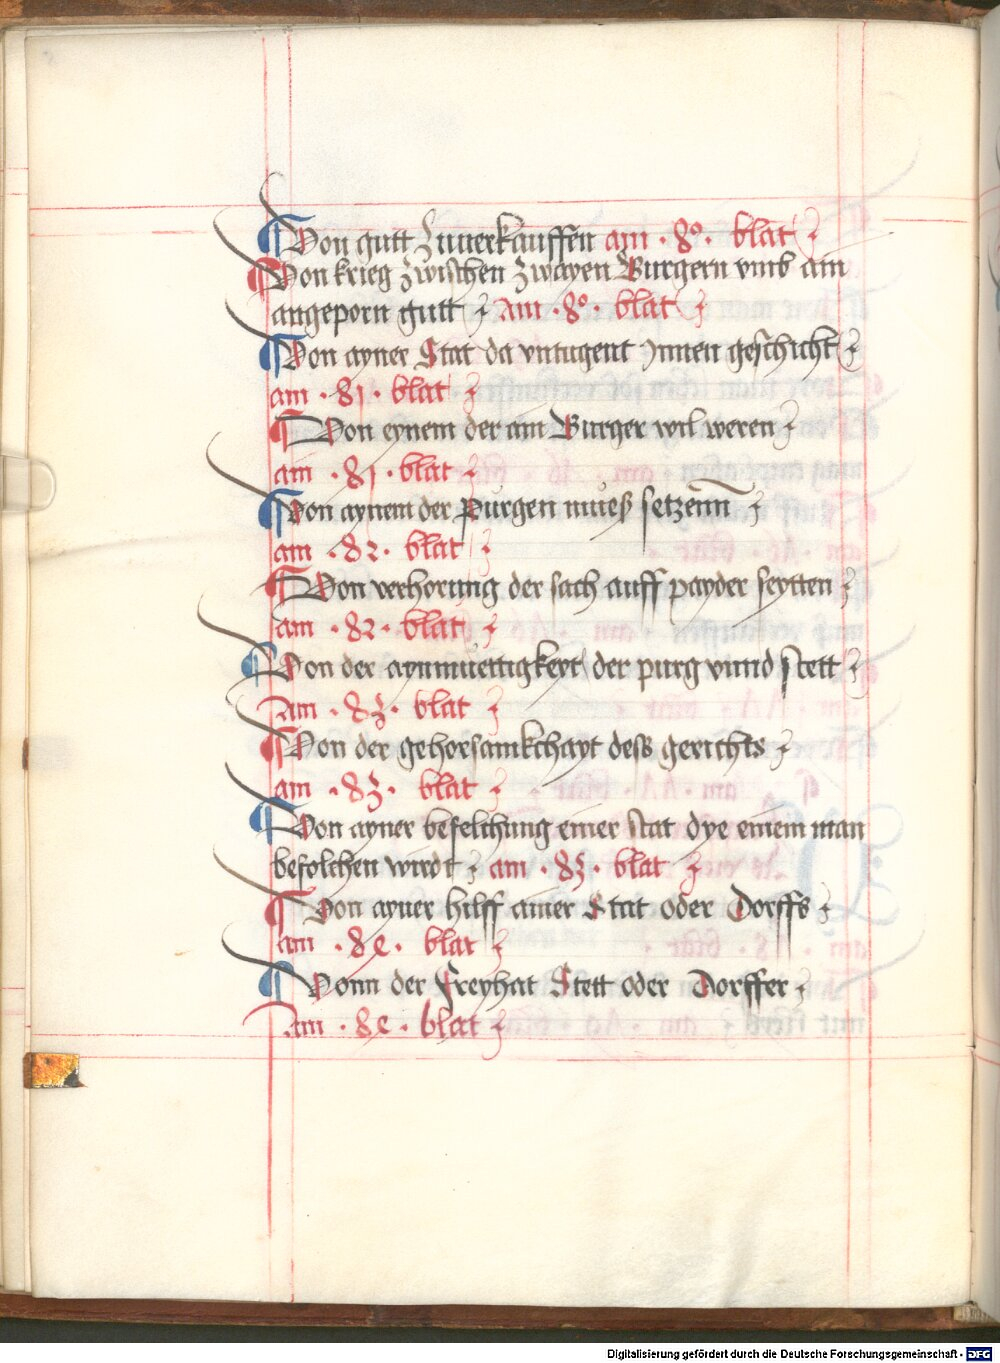 Von gutt zuuerkauffen am · 80 · blat
Von krieg zwischen zwayen Burgern vmb ain
angeporn gutt Am · 80 · blat
Von ayner Stat da vntugent Jnnen geschicht
am · 81 · blat
Von eynem der ain Burger wil weren
am · 81 · blat
Von aynem der Purgen mueß setzenn
am · 82 · blat
Von verhorung der sach auff payder seytten
am · 82 · blat
Von der aynmuettigkeyt der purg vnnd stett
am · 83 · blat
Von der gehorsamkchayt dess gerichts
am · 83 · blat
Von ayner befelchung einer stat dye einem man
befolchen wirdt am · 83 · blat
Von ayner hilff ainer Stat oder Dorffs
am · 84 · blat
Vonn der Freyhat Stett oder Dorffer
am · 84 · blat
Digitalisierung gefördert durch die Deutsche Forschungsgemeinschaft - DFG